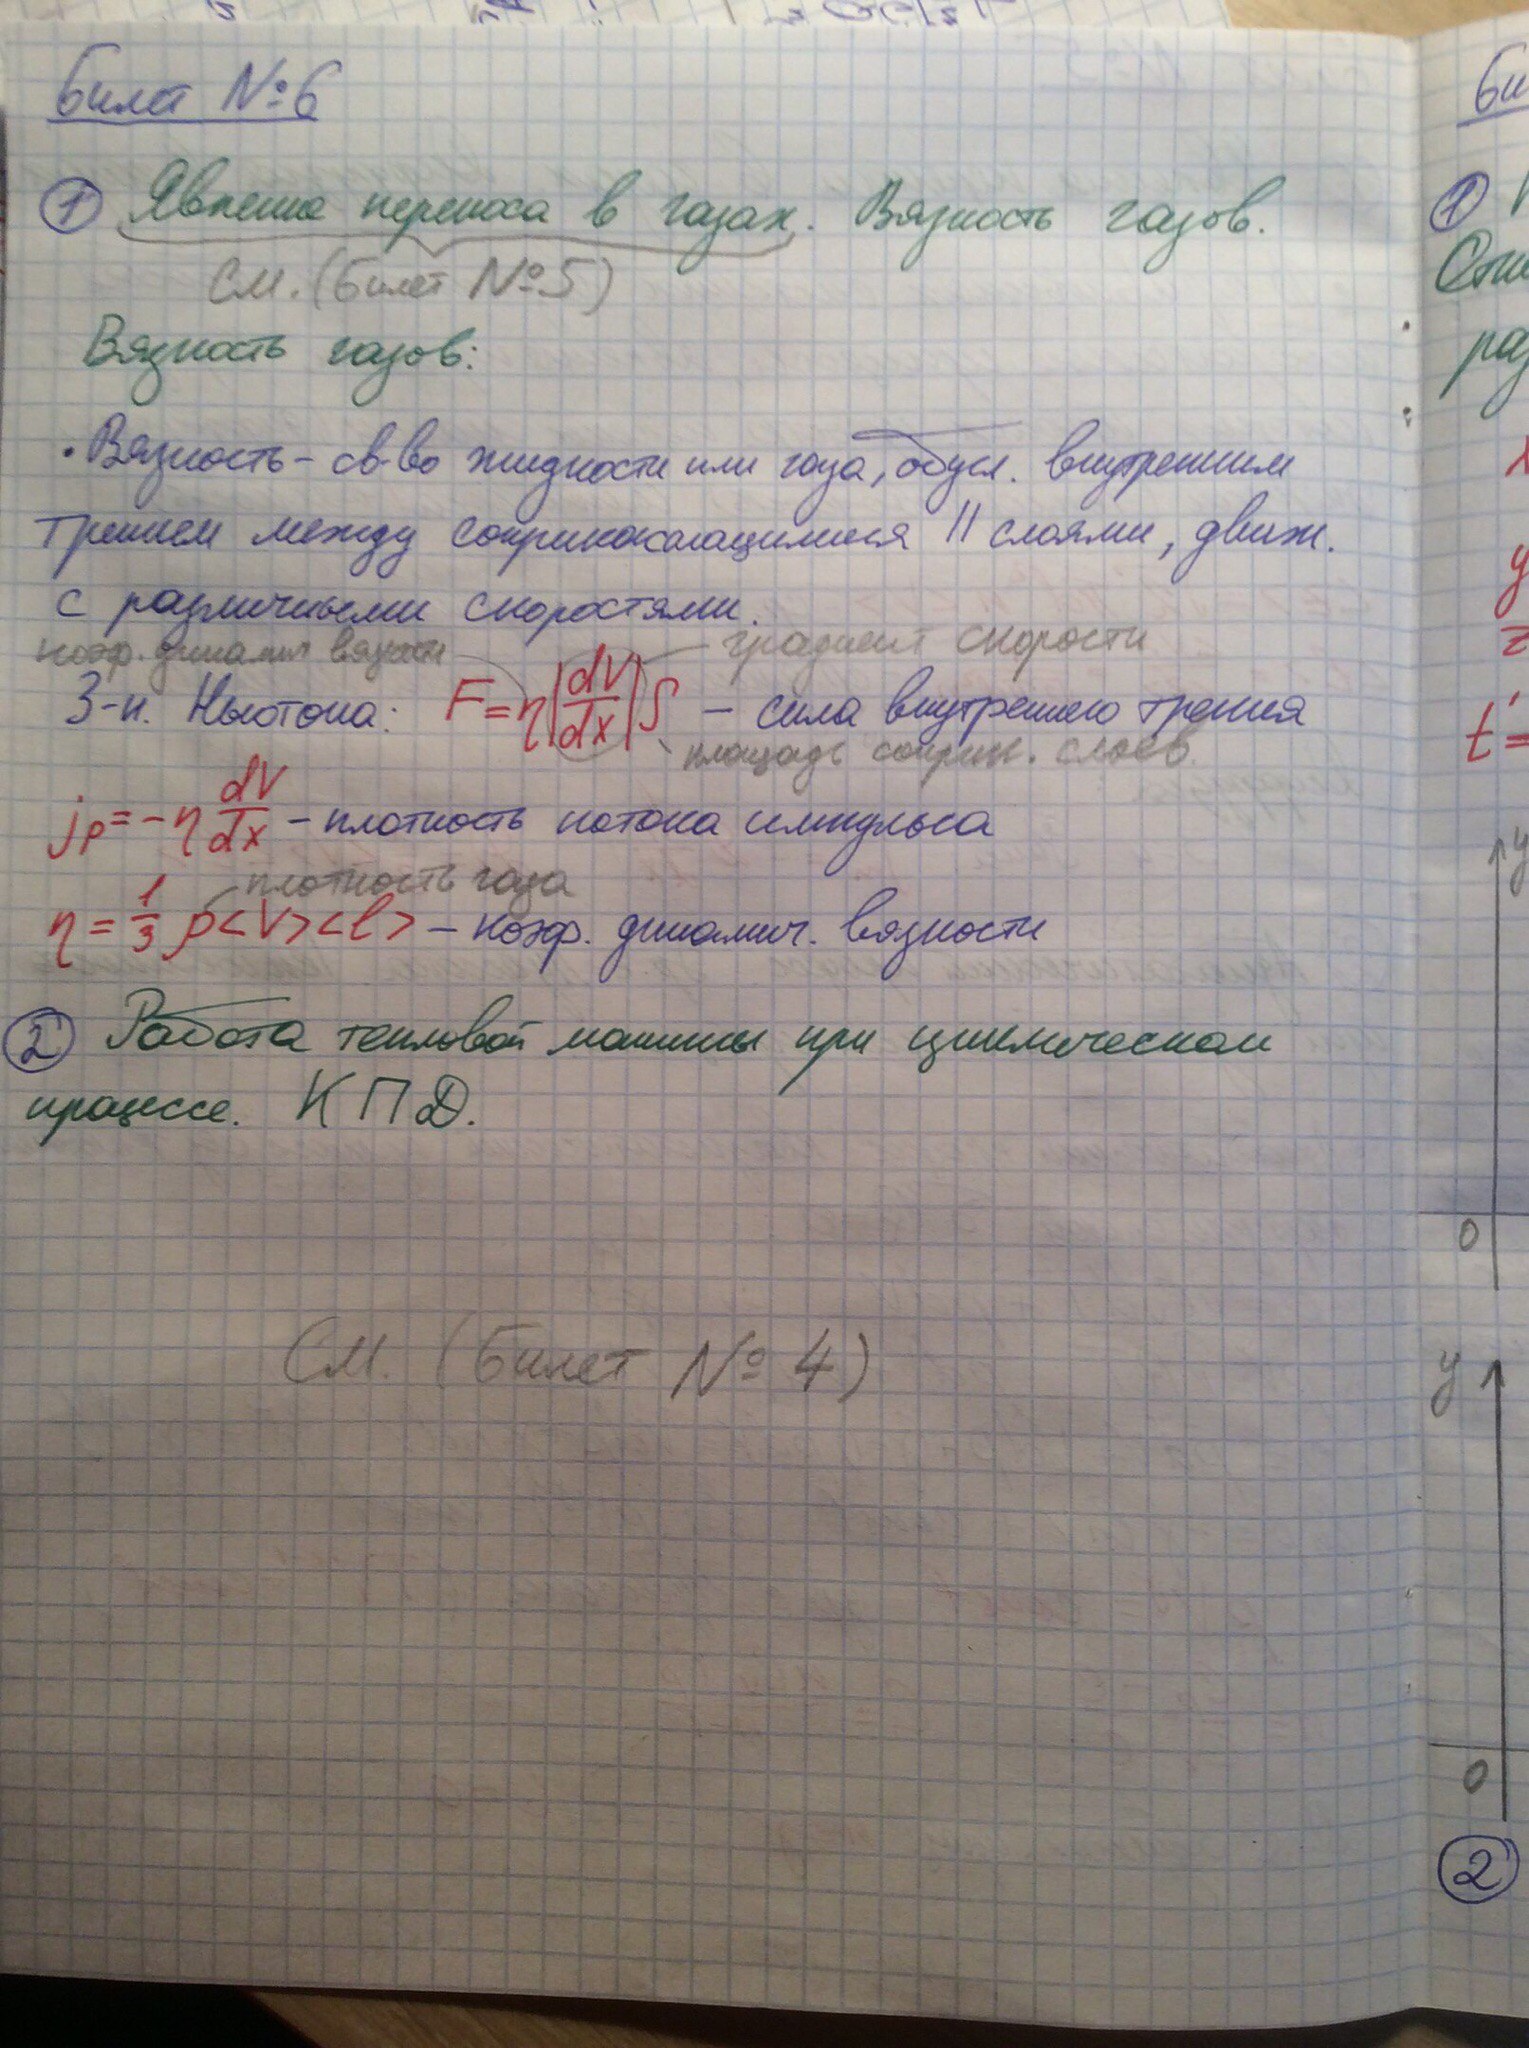 Билет №6
① Явление переноса в газах. Вязкость газов.
См. (Билет №5)
Вязкость газов:
• Вязкость – св-во жидкости или газа, обусл. внутренним
трением между соприкасающимися || слоями, движ.
с различными скоростями.
коэф. динамич вязкости
градиент скорости
З-н. Ньютона: F = η|dV/dx|S – сила внутреннего трения
площадь соприк. слоёв.
jp = -η dV/dx – плотность потока импульса
плотность газа
η = 1/3 ρ<V><l> – коэф. динамич. вязкости
② Работа тепловой машины при циклическом
процессе. КПД.
См. (Билет № 4)
Би
①
раз
y
z
t'=
y
0
y
0
②